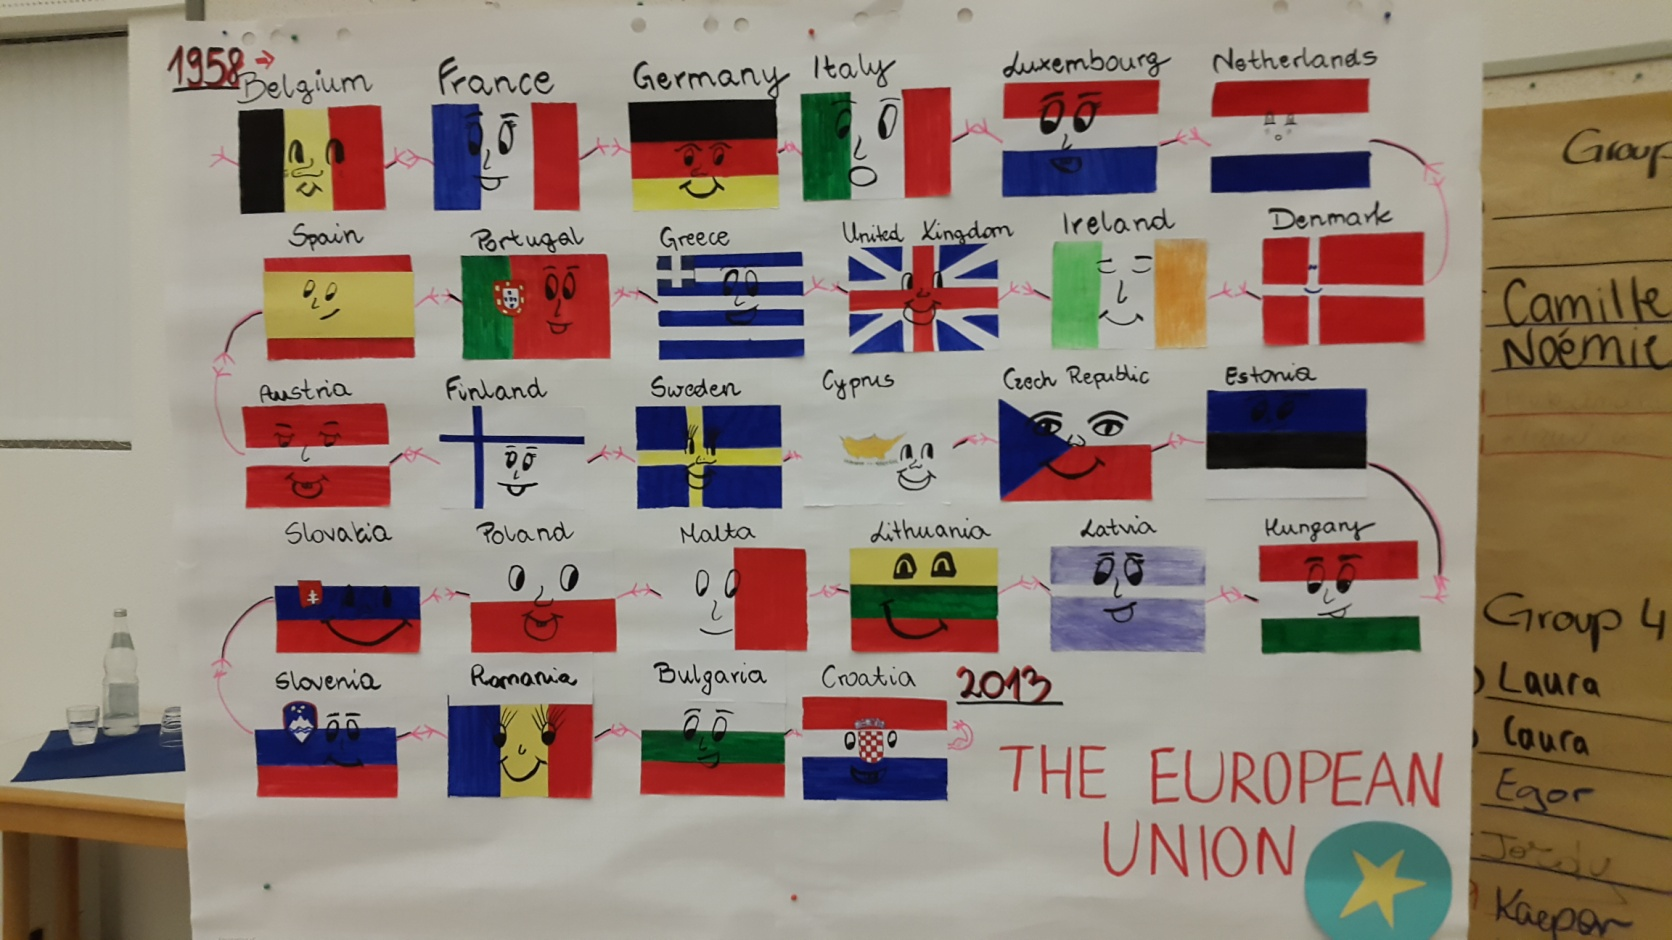 1958
Belgium France Germany Italy Luxembourg Netherlands
Spain Portugal Greece United Kingdom Ireland Denmark
Austria Finland Sweden Cyprus Czech Republic Estonia
Slovakia Poland Malta Lithuania Latvia Hungary
Slovenia Romania Bulgaria Croatia 2013
THE EUROPEAN
UNION
Group
Camille
Noémie
Group 4
Laura
Laura
Egor
Jordy
Kaspar